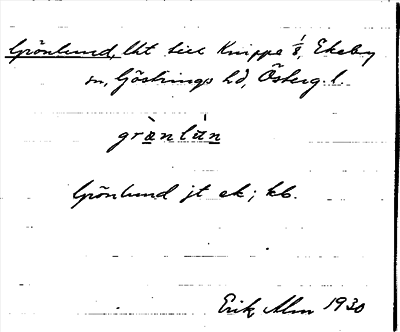 Grönlund, lht till Knippa 1/8, Ekeby
sn, Göstrings hd, Österg. l.
grànlún
Grönlund jt ek; kb.
Erik Alm 1930